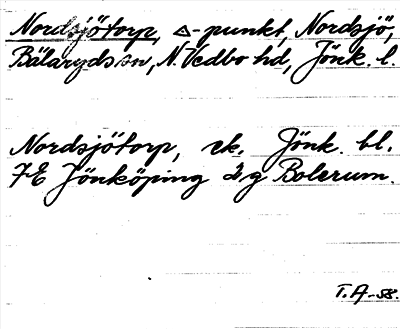 Nordsjötorp, △-punkt, Nordsjö,
Bälaryds sn, N. Vedbo hd, Jönk. l.
Nordsjötorp, ek. Jönk. bl.
7E Jönköping 2g Bolerum.
T.A-58.